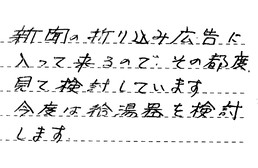 新聞の折り込み広告に
入って来るので、その都度
見て検討しています
今度は給湯器を検討
します